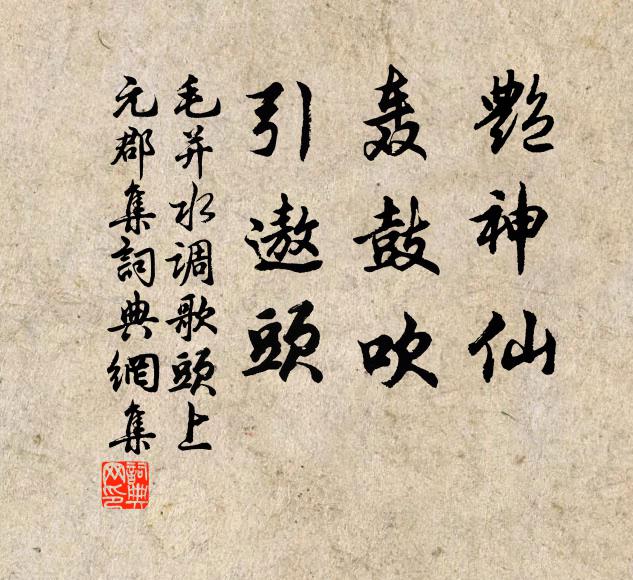 艷神仙
轰鼓吹
引遨頭
毛并水调歌頭上
元郡集詞典網集
詞典网印